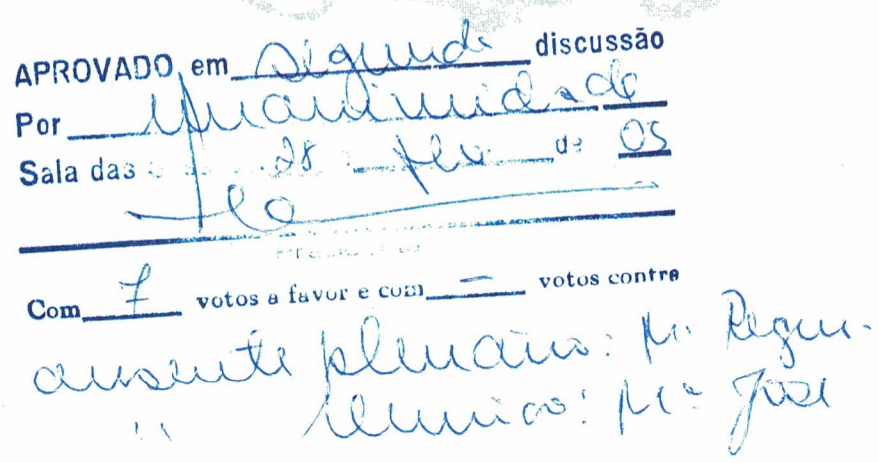 APROVADO, em segunda discussão
Por unanimidade
Sala das 28 fev. de 05
Com 7 votos a favor e com — votos contra
ausente plenário: Mª Regin.
" reunião: Mª José